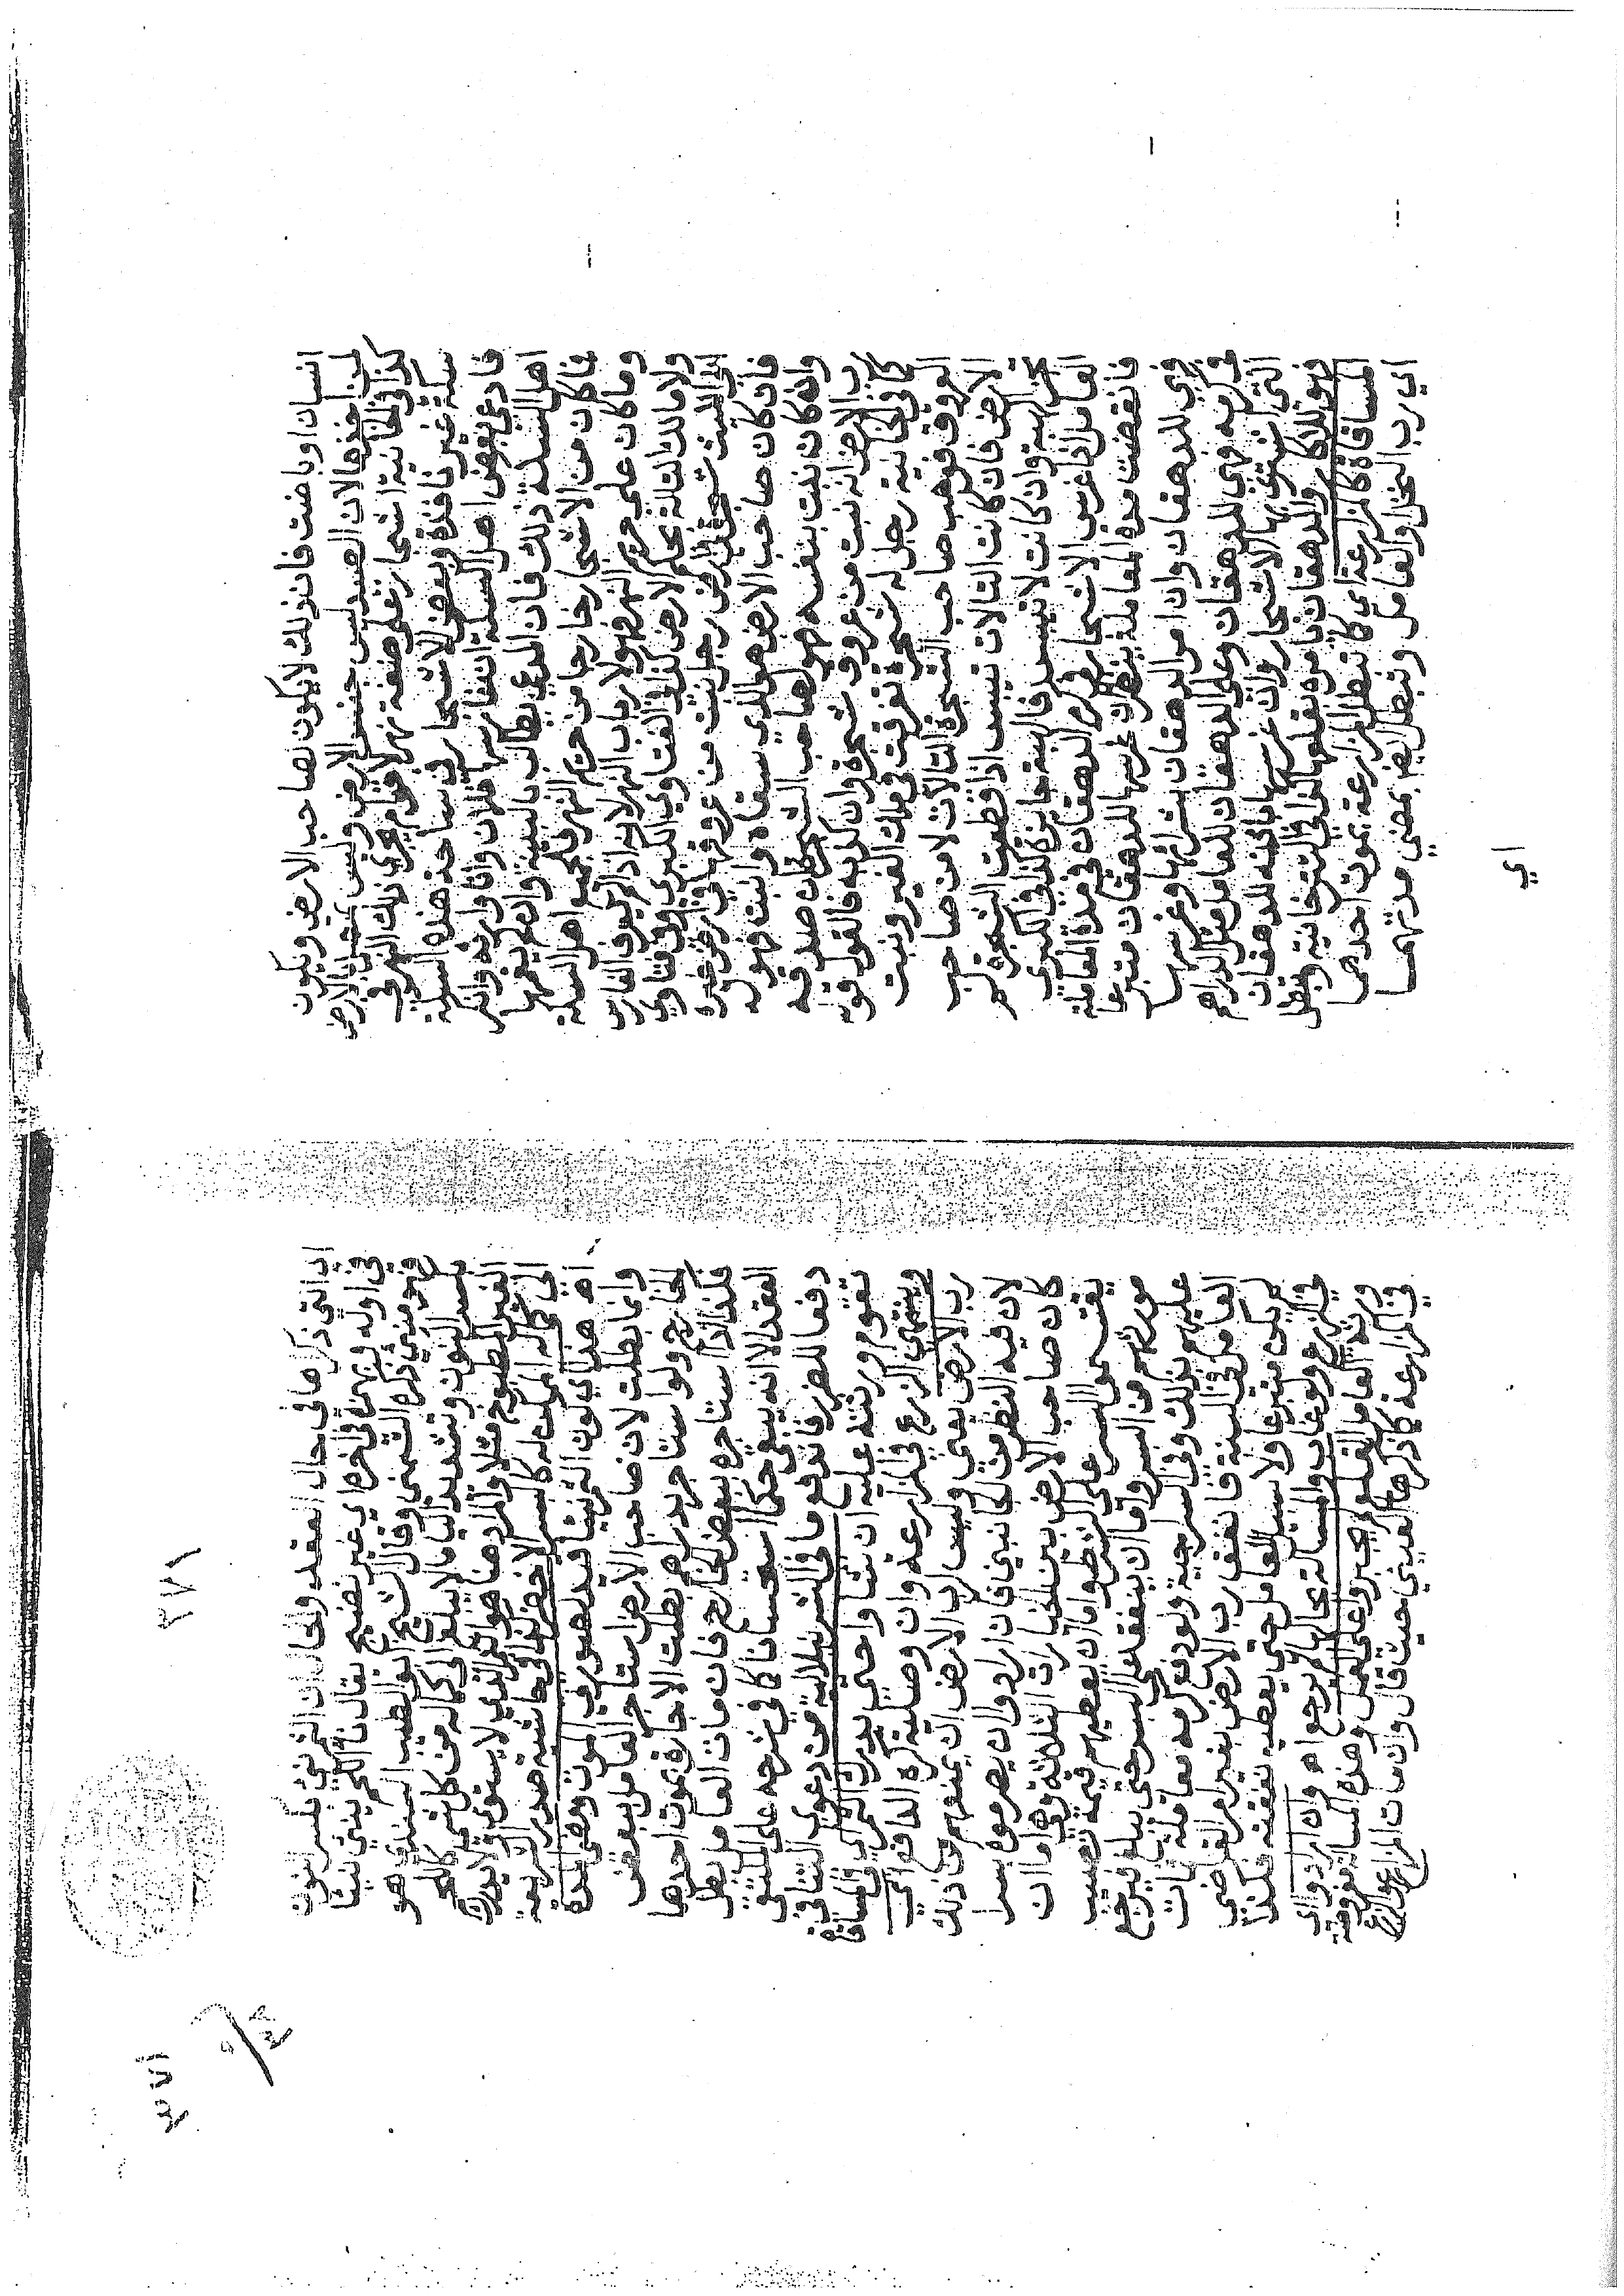 انسان او باضت فان ذلك لا يكون لصاحب الارض ويكون
لمن اخذه لان الصيد ليس جنس الارض وليس بمتصل بالارض
كذا في الخانية اشجار على ضفة نهر لاقوام يجري ذلك النهر في
سكة غير نافذة وبعض الاشجار في ساحة هذه السكة
فادعى بعض اهل السكة ان غارسها فلان وانا وارثه وانكر
اهل السكة ذلك فان المدعي يطالب بالبينة وان لم يقمها
فما كان من الاشجار خارجا من حريم النهر فلجميع اهل السكة
وما كان على حريم النهر فهو لارباب النهر لانه اذا لم يعرف الغارس
ولا مالك التالة يحكم الارض كذا في الفتاوى الكبرى وفي فتاوى
ابي الليث شجرة في ارض رجل نبتت من عروقها في ارض غيره
فان كان صاحب الارض هو الذي سقاه وانبته فهو له
وان كان نبت بنفسه فهو لصاحب الشجرة ان صدقه
رب الارض انه نبت من عروق شجره وان كذبه فالقول قوله
كما في الخانية رجل له شجرة تفرقت في ملك الغير ونبت
العروق فوهب صاحب الشجرة التالات لا من صاحب
الارض فان كانت التالات تيبس اذا قطعت الشجرة لم
تجز الهبة وان كانت لا تيبس فالهبة جائزة كذا في الكبرى
العامل اذا غرس الاشجار في كرم الدهقان في مدة المعاملة
فانقضت مدة المعاملة ينظر ان غرسها للدهقان متبرعا
فهي للدهقان وان امر الدهقان بشرائها وغرسها
في كرمه فهي للدهقان وعلى الدهقان للعامل مثل الدراهم
التي اشترى بها الاشجار وان غرسها باذنه للدهقان
فهو للاكار والدهقان يامره بقلعها كذا في التترخانية وتبطل
المساقاة كالمزارعة اي كما تبطل المزارعة بموت احدهما
اي رب النخل والعامل وتبطل ايضا بمضي مدتهما
اي
٣٧١
اي التي ذكرها في حال العقد والحال ان الثمر نيئ بكسر النون
في اوله وبهمزة في اخره اي غير نضيج يقال ناء اللحم ينيئ نيئا
فهو نيئ ذكره الشمني وقال الشيخ ابو الطيب السندي هو
بكسر النون وتشديد الياء ما لا يبلغ الى كماله من كل شيء كاللحم
الغير المطبوخ مثلا والمراد هنا هو الثمر الذي لا يستوي ولا يدرك
الى كماله الممكن له كالبسر الاخضر كذا في حاشية صدر الشريعة
اهـ هذا اي كون الثمر نيئا قيد لصورتي الموت ومضي المدة
وانما بطلت لان صاحب الارض استاجر العامل ببعض
الخارج ولو استاجر بدراهم بطلت الاجارة بموت احدهما
فكذا اذا استاجره ببعض الخارج فان مات العامل بطل
العقد الا انه يبقى حكما استحسانا كما في شرحه على الملتقى
دفعا للضرر فاندفع ما في الشرنبلالية من دعوى التنافي
تقوم ورثته عليه ان شاؤا حتى يدرك الثمر اي في المساقاة
وينتهي الزرع في المزارعة وان وصلية كره الدافع اي
رب الارض يعني وليس لرب الارض ان يمنعهم من ذلك
لان فيه النظر من الجانبين فان ارادوا ان يصرموه بسرا
كان صاحب الارض بين الخيارات الثلاثة وهي اما ان
يقسم البسر على الشرط واما ان يعطيهم قيمة نصيب
مورثهم من البسر واما ان ينفق على البسر حتى يبلغ فيرجع
عليهم بذلك وفي السراجية ولو دفع كرمه معاملة فمات
العامل في السنة فانفق رب الارض بغير امر القاضي
لم يكن متبرعا ولا سبيل للعامل حتى يعطيه نفقته فكذا
في الزرع ولو غاب والمسالة بحالها لم يرجع اهـ وان ارادوا اي
ورثة العامل القلع لم يجبروا على العمل وهذه المسالة مفروضة
في المزارعة كما ذكرها العيني حيث قال وان مات المزارع